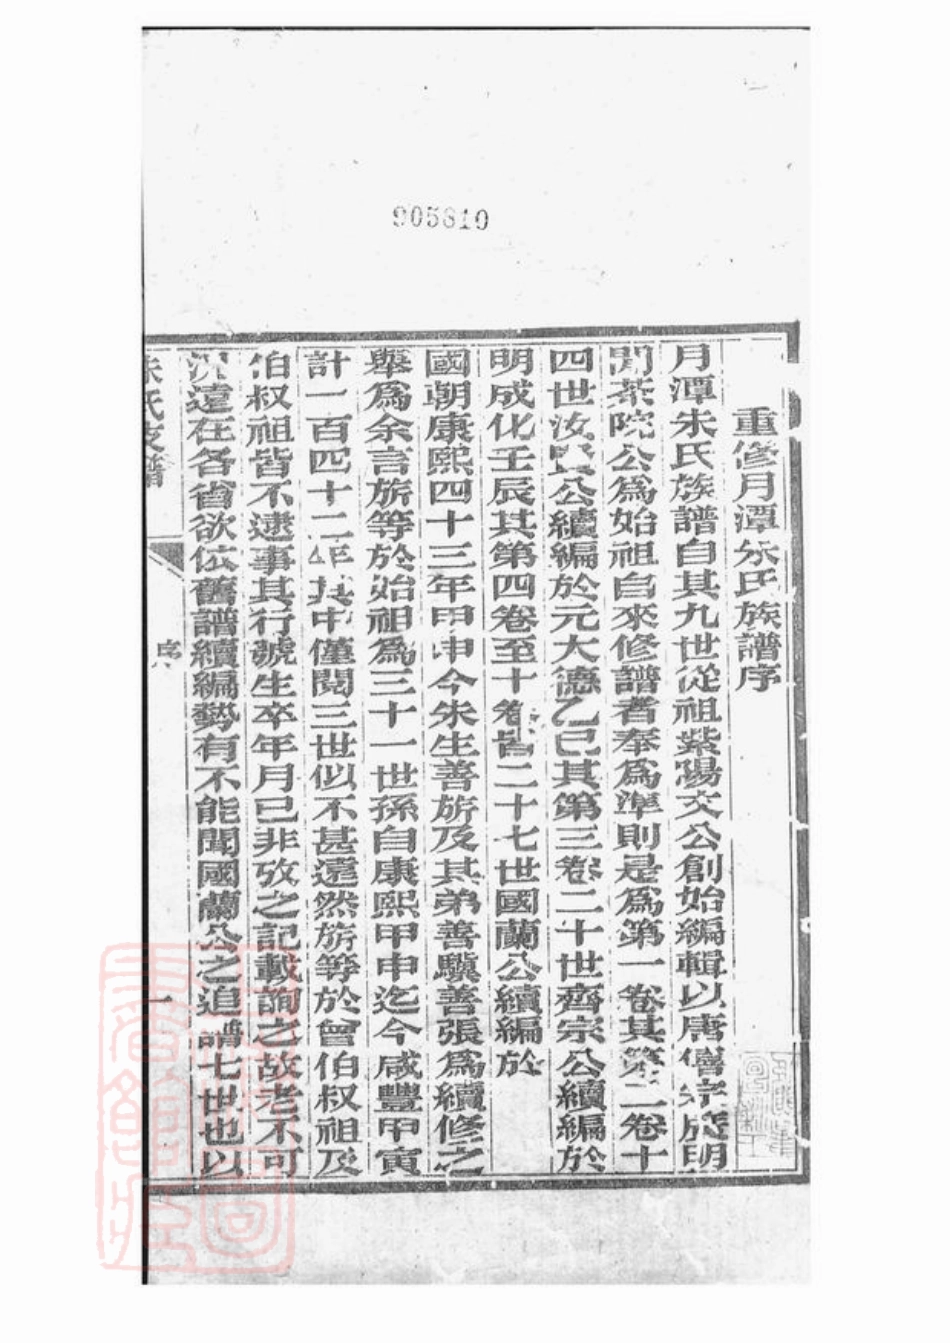 905810
重修月潭朱氏族譜序
月潭朱氏族譜自其九世從祖紫陽文公創始編輯以唐僖宗廢明
間茶院公爲始祖自來修譜者奉爲準則是爲第一卷其第二卷十
四世汝賢公續編於元大德乙巳其第三卷二十世齊宗公續編於
明成化壬辰其第四卷至十卷皆二十七世國蘭公續編於
國朝康熙四十三年甲申今朱生善旂及其弟善驥善張爲續修之
舉爲余言旂等於始祖爲三十一世孫自康熙甲申迄今咸豐甲寅
計一百四十二年其中僅閱三世似不甚遠然旂等於曾伯叔祖及
伯叔祖皆不逮事其行號生卒年月已非攷之記載詢之故老不可
況遠在各省欲依舊譜續編勢有不能聞國蘭公之追譜七世也以
朱氏支譜
序
一